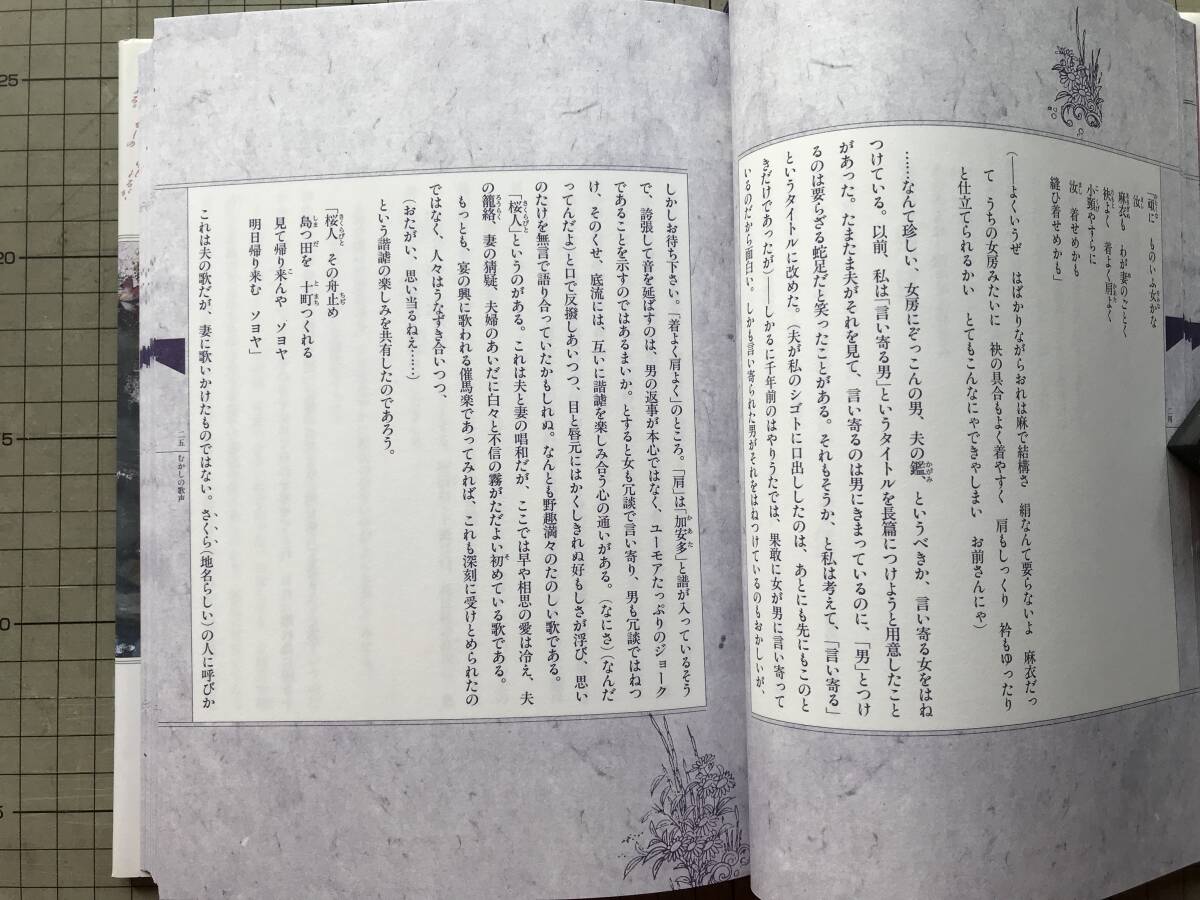 「頑に　ものいふ女かな
汝　麻衣も　わが妻のごとく
袂よく　着よく肩よく
小頸やすらに
汝　着せめかも
縫ひ着せめかも」
（――よくいうぜ　はばかりながらおれは麻で結構さ　絹なんて要らないよ　麻衣だっ
て　うちの女房みたいに　袂の具合もよく着やすく　肩もしっくり　衿もゆったり
と仕立てられるかい　とてもこんなにゃできゃしまい　お前さんにゃ）
……なんて珍しい、女房にぞっこんの男、夫の鑑、というべきか、言い寄る女をはね
つけている。以前、私は「言い寄る男」というタイトルを長篇につけようと用意したこと
があった。たまたま夫がそれを見て、言い寄るのは男にきまっているのに、「男」とつけ
るのは要らざる蛇足だと笑ったことがある。それもそうか、と私は考えて、「言い寄る」
というタイトルに改めた。（夫が私のシゴトに口出ししたのは、あとにも先にもこのと
きだけであったが）――しかるに千年前のはやりうたでは、果敢に女が男に言い寄って
いるのだから面白い。しかも言い寄られた男がそれをはねつけているのもおかしいが、
しかしお待ち下さい。「着よく肩よく」のところ。「肩」は「加安多」と譜が入っているそう
で、誇張して音を延ばすのは、男の返事が本心ではなく、ユーモアたっぷりのジョーク
であることを示すのではあるまいか。とすると女も冗談で言い寄り、男も冗談ではねつ
け、そのくせ、底流には、互いに諧謔を楽しみ合う心の通いがある。（なにさ）（なんだ
ってんだよ）と口で反撥しあいつつ、目と唇元にはかくしきれぬ好もしさが浮び、思い
のたけを無言で語り合っていたかもしれぬ。なんとも野趣満々のたのしい歌である。
「桜人」というのがある。これは夫と妻の唱和だが、ここでは早や相思の愛は冷え、夫
の籠絡、妻の猜疑、夫婦のあいだに白々と不信の霧がただよい初めている歌である。
もっとも、宴の興に歌われる催馬楽であってみれば、これも深刻に受けとめられたの
ではなく、人々はうなずき合いつつ、
（おたがい、思い当るねえ……）
という諧謔の楽しみを共有したのであろう。
「桜人　その舟止め
島つ田を　十町つくれる
見て帰り来んや　ソヨヤ
明日帰り来む　ソヨヤ」
これは夫の歌だが、妻に歌いかけたものではない。さくら（地名らしい）の人に呼びか
二五　むかしの歌声